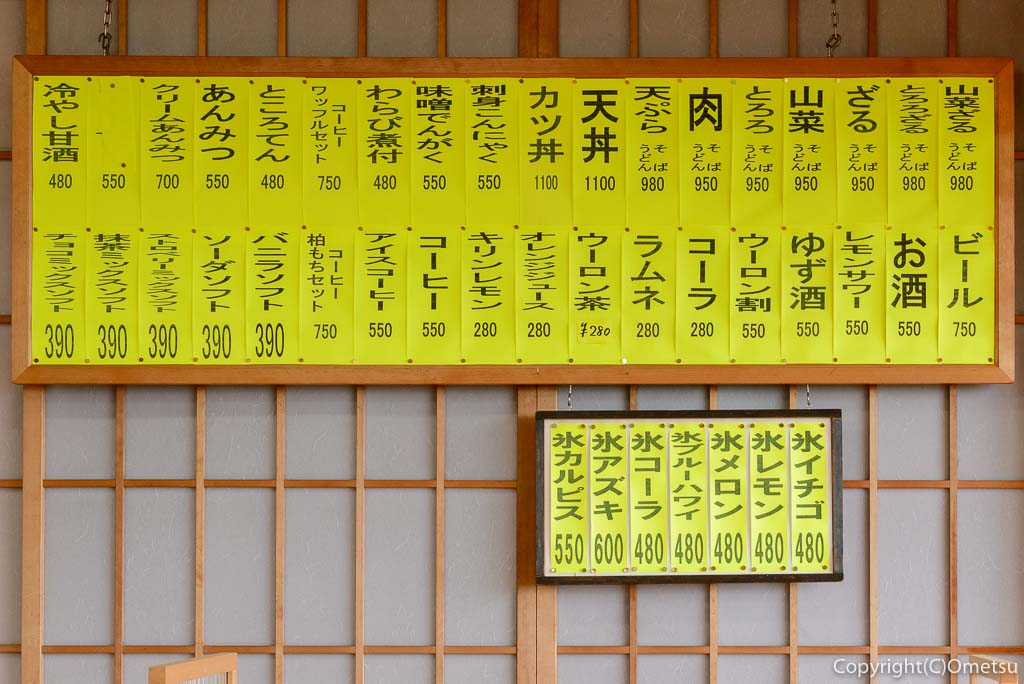 山菜ざる そば うどん 980
とろろざる そば うどん 980
ざる そば うどん 950
山菜 そば うどん 950
とろろ そば うどん 950
肉 そば うどん 950
天ぷら そば うどん 980
天丼 1100
カツ丼 1100
刺身こんにゃく 550
味噌でんがく 550
わらび煮付 480
コーヒー ワッフルセット 750
ところてん 480
あんみつ 550
クリームあんみつ 700
550
冷やし甘酒 480
ビール 750
お酒 550
レモンサワー 550
ゆず酒 550
ウーロン割 550
コーラ 280
ラムネ 280
ウーロン茶 ¥280
オレンジジュース 280
キリンレモン 280
コーヒー 550
アイスコーヒー 550
コーヒー 柏もちセット 750
バニラソフト 390
ソーダソフト 390
ストロベリーミックスソフト 390
抹茶ミックスソフト 390
チョコミックスソフト 390
氷イチゴ 480
氷レモン 480
氷メロン 480
氷ブルーハワイ 480
氷コーラ 480
氷アズキ 600
氷カルピス 550
Copyright(C)Ometsu